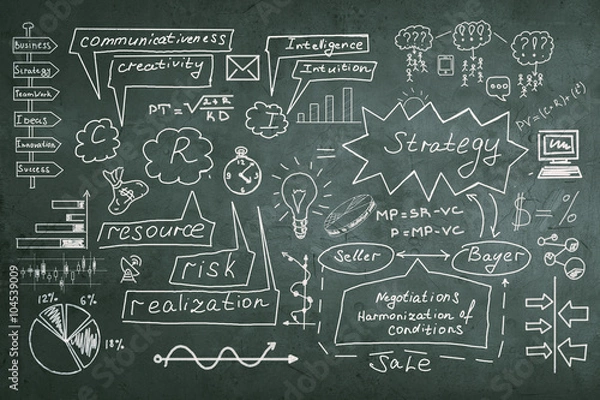 Business
Strategy
TeamWork
Ideas
Innovation
Success
communicativeness
creativity
C
R
I
Intelligence
Intuition
PT=
KD
Strategy
MP=SR-VC
P=MP-VC
$=%
resource
risk
realization
Seller
Bayer
Negotiations
Harmonization of
conditions
Sale
12%
6%
18%
Adobe Stock | #104539009